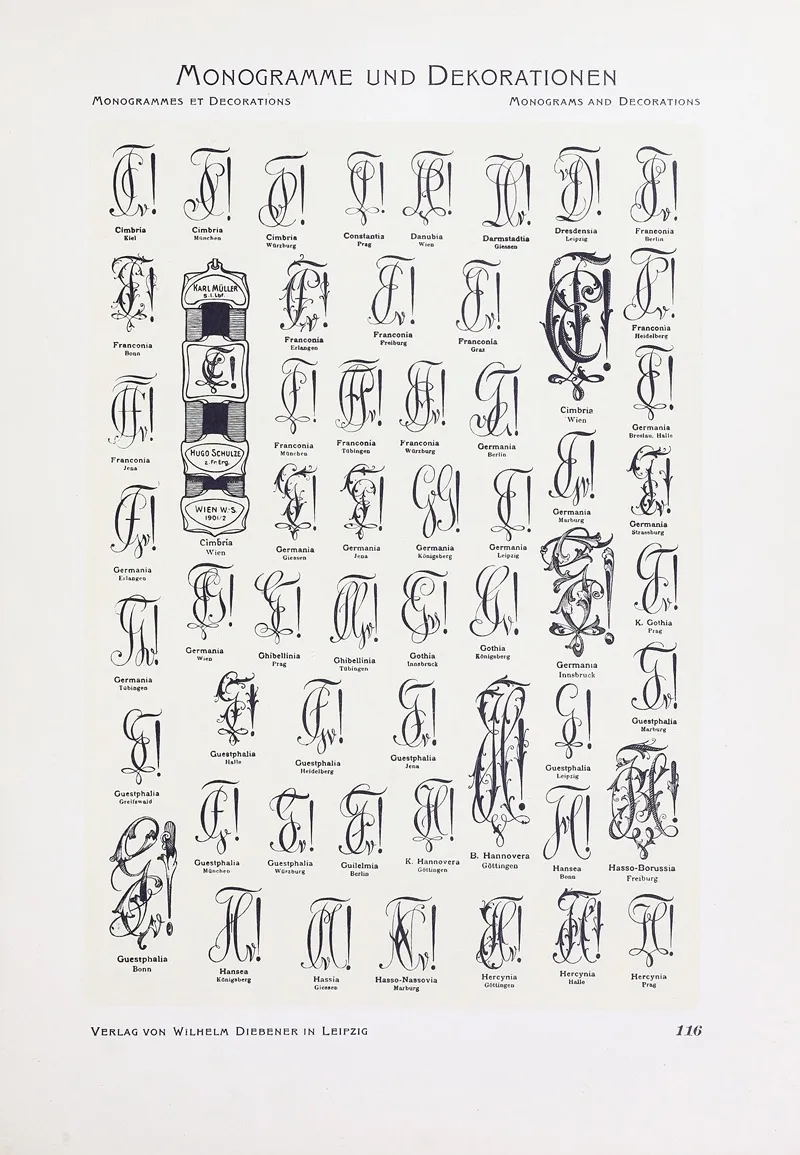 MONOGRAMME UND DEKORATIONEN
MONOGRAMMES ET DECORATIONS
MONOGRAMS AND DECORATIONS
Cimbria
Kiel
Cimbria
München
Cimbria
Würzburg
Constantia
Prag
Danubia
Wien
Darmstadtia
Giessen
Dresdensia
Leipzig
Franconia
Berlin
Franconia
Bonn
KARL MÜLLER
s. l. Lbf.
HUGO SCHULZE
z. fr. Erg.
WIEN W.-S.
1901/2
Cimbria
Wien
Franconia
Erlangen
Franconia
Freiburg
Franconia
Graz
Cimbria
Wien
Franconia
Heidelberg
Franconia
Jena
Franconia
München
Franconia
Tübingen
Franconia
Würzburg
Germania
Berlin
Germania
Breslau, Halle
Germania
Erlangen
Germania
Giessen
Germania
Jena
Germania
Königsberg
Germania
Leipzig
Germania
Marburg
Germania
Strassburg
Germania
Tübingen
Germania
Wien
Ghibellinia
Prag
Ghibellinia
Tübingen
Gothia
Innsbruck
Gothia
Königsberg
Germania
Innsbruck
K. Gothia
Prag
Guestphalia
Greifswald
Guestphalia
Halle
Guestphalia
Heidelberg
Guestphalia
Jena
Guestphalia
Leipzig
Guestphalia
Marburg
Guestphalia
Bonn
Guestphalia
München
Guestphalia
Würzburg
Guilelmia
Berlin
K. Hannovera
Göttingen
B. Hannovera
Göttingen
Hansea
Bonn
Hasso-Borussia
Freiburg
Hansea
Königsberg
Hassia
Giessen
Hasso-Nassovia
Marburg
Hercynia
Göttingen
Hercynia
Halle
Hercynia
Prag
VERLAG VON WILHELM DIEBENER IN LEIPZIG
116